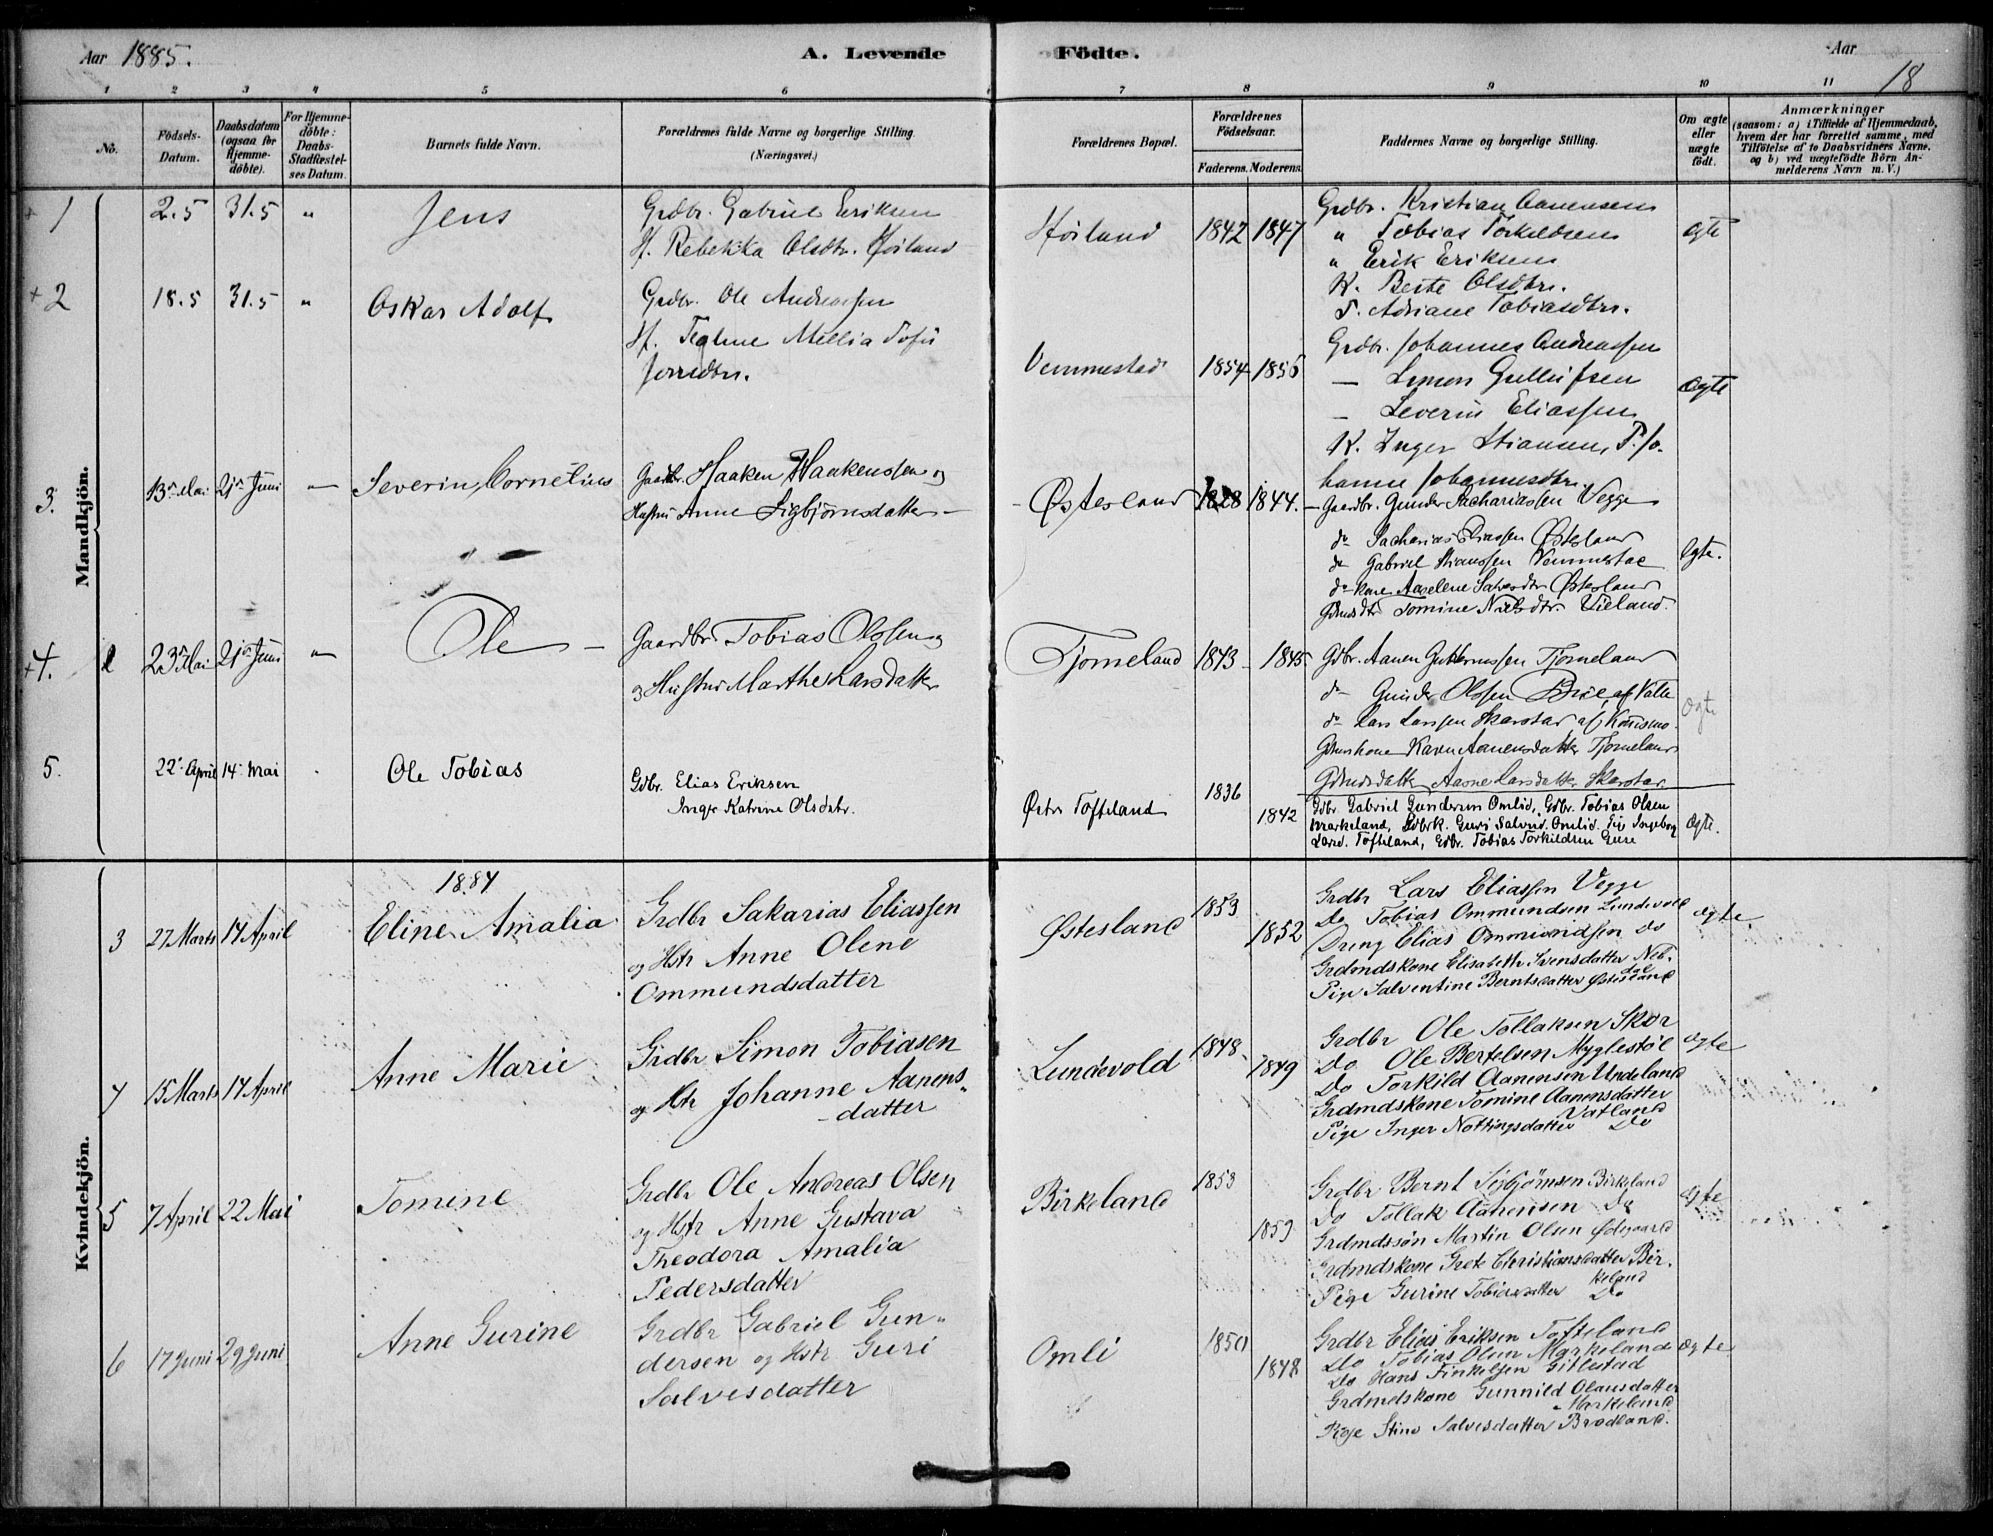 Aar 1885.
A. Levende Födte.
Aar 18
1 2 3 4 5 6 7 8 9 10 11
No.
Födsels-Datum.
Daabsdatum (ogsaa for Hjemme-döbte).
For Hjemme-döbte: Daabs-Stadfæstel-ses Datum.
Barnets fulde Navn.
Forældrenes fulde Navne og borgerlige Stilling.
(Næringsvei.)
Forældrenes Bopæl.
Forældrenes Födselsaar.
Faderens. Moderens.
Faddernes Navne og borgerlige Stilling.
Om ægte eller uægte födt.
Anmærkninger
(saasom: a) i Tilfælde af Hjemmedaab,
hvem der har forrettet samme, med
Tilföielse af to Daabsvidners Navne.
og b) ved uægtefödte Börn An-
melderens Navn m. V.)
Mandkjön.
+ 1 2.5 31.5 " Jens
Grdbr. Gabriel Eriksen
H. Rebekka Olsdtr. Høiland
Høiland 1842 1847
Grdbr. Kristian Aanensen
" Tobias Torkildsen
" Erik Eriksen
K. Berte Olsdtr.
P. Adriane Tobiasdtr.
ægte
+ 2 18.5 31.5 " Oskar Adolf
Grdbr. Ole Andreassen
H. Mellia
Vemmestad 1854 1856
Grdbr. Johannes Andreassen
— Simon Gullufsen
— Severin Eliassen
K. Inger Stiansen, P. Jo-
hanne Johannesdtr.
ægte
3. 13de Mai 21de Juni — Severin Cornelius
Gaardbr. Haaken Haakenssen og
Hustru Anne Sigbjørnsdatter —
Østesland 1828 1844.
Gaardbr. Gunder Sachariassen Vegge
do Sacharias Eliassen Østesland
do Gabriel Stianssen Vemmestad
do kone Aaselene Salvesdtr Østesland
Gdmdsdtr Tomine Nielsdtr. Vieland.
ægte.
+4. 23de Mai 21de Juni " Ole —
Gaardbr. Tobias Olssen og
og Hustru Marthe Larsdatter
Tjomeland 1843 — 1845.
Gdbr. Aanen Guttormssen Tjomeland
do Gunder Olssen af Valle
do Lars Larssen Skarstad af Konsmo
Gdmdskone Karen Aanensdatter Tjomeland
Gdmdsdatter Aasne Larsdatter Skarstad.
ægte
5. 22 April 14 Mai Ole Tobias
Gdbr. Elias Eriksen
Inger Katrine Olsdatr.
Østre Tofteland 1836 1842
Gdbr. Gabriel Gundersen Omlid, Gdbr. Tobias Olsen
Markeland, Gdbrk. Guri Salvesd. Omlid. Pig Ingeborg
Larsd. Tofteland, Gdbr. Tobias Torkildsen
ægte.
Kvindekjön.
1884
3 27 Marts 14 April Eline Amalia
Grdbr Sakarias Eliassen
og Hstr Anne Olene
Ommundsdatter
Østesland 1853 1852
Grdbr Lars Eliassen Vegge
Do Tobias Ommundsen Lundevold
Dreng Elias Ommundsen do
Grdmdskone Elisabeth Svensdatter
Pige Salventine Berntsdatter Østesland
ægte
4 15 Marts 14 April Anne Marie
Grdbr Simon Tobiasen
og Hstr Johanne Aanens-
datter
Lundevold 1848 1849
Grdbr Ole Tollaksen Skor
Do Ole Bertelsen Myglestøl
Do Torkild Aanensen Undeland
Grdmdskone Tomine Aanensdatter
Vatland
Pige Inger Nottingsdatter Do
ægte
5 7 April 22 Mai Tomine
Grdbr Ole Andreas Olsen
og Hstr Anne Gustava
Theodora Amalia
Pedersdatter
Birkeland 1853 1859
Grdbr Bernt Sigbjørnsen Birkeland
Do Tollak Aanensen Do
Grdmdssøn Martin Olsen Ødegaard
Grdmdskone Grete Christiansdatter Bir-
keland
Pige Gurine Tobiasdatter Do
ægte
6 17 Juni 29 Juni Anne Gurine
Grdbr Gabriel Gun-
dersen og Hstr Guri
Salvesdatter
Omli 1850 1848
Grdbr Elias Eriksen Tofteland
Do Tobias Olsen Markeland
Do Hans Finkelsen Gitlestad
Grdmdskone Gunnild Olausdatter
Markeland
Pige Stine Salvesdatter Brødland.
ægte